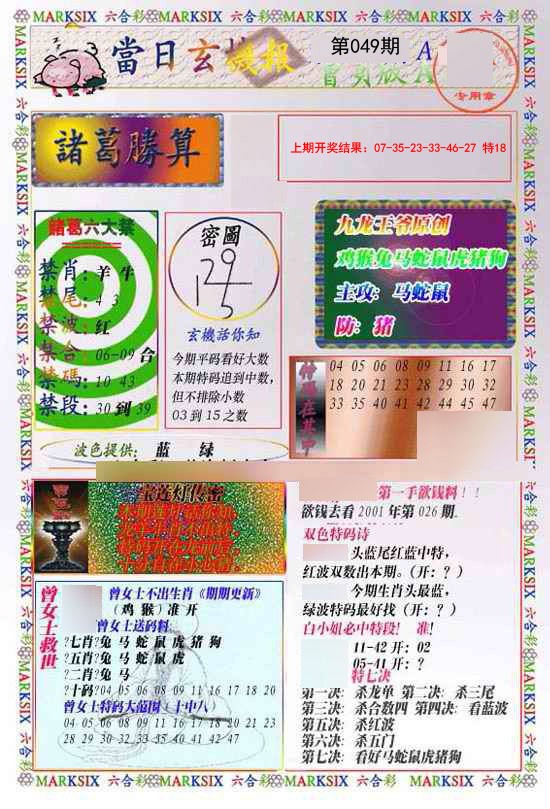 MARKSIX 六合彩 MARKSIX 六合彩 MARKSIX 六合彩 MARKSIX 六合彩 MARKSIX
當日玄機報
第049期
專用章
諸葛勝算
上期开奖结果：07-35-23-33-46-27 特18
諸葛六大禁
禁肖：羊牛
禁尾：4 3
禁波：红
禁合：06-09合
禁碼：10 43
禁段：30到39
密圖
玄機話你知
今期平码看好大数
本期特码追到中数，
但不排除小数
03到15之数
九龙王爷原创
鸡猴兔马蛇鼠虎猪狗
主攻：马蛇鼠
防：猪
04 05 06 08 09 11 16 17
18 20 21 23 28 29 30 32
33 35 40 41 42 44 45 47
波色提供： 蓝 绿
宝莲灯传密
第一手欲钱料！！
欲钱去看2001年第026期
双色特码诗
头蓝尾红蓝中特，
红波双数出本期。（开：？）
今期生肖头最蓝，
绿波特码最好找（开：？）
白小姐必中特段！ 准！
11-42 开：02
05-41 开：？
特七决
第一决：杀龙单 第二决：杀三尾
第三决：杀合数四 第四决：看蓝波
第五决：杀红波
第六决：杀五门
第七决：看好马蛇鼠虎猪狗
曾女士救世
曾女士不出生肖《期期更新》
（鸡猴）准开
曾女士送码料
?七肖?兔马蛇鼠虎猪狗
?五肖?兔马蛇鼠虎
?二肖?兔马
?十码?04 05 06 08 09 11 16 17 18 20
曾女士特码大范围（十中八）
04 05 06 08 09 11 16 17 18 20 21 23
28 29 30 32 33 35 40 41 42 47
MARKSIX 六合彩 MARKSIX 六合彩 MARKSIX 六合彩 MARKSIX 六合彩 MARKSIX